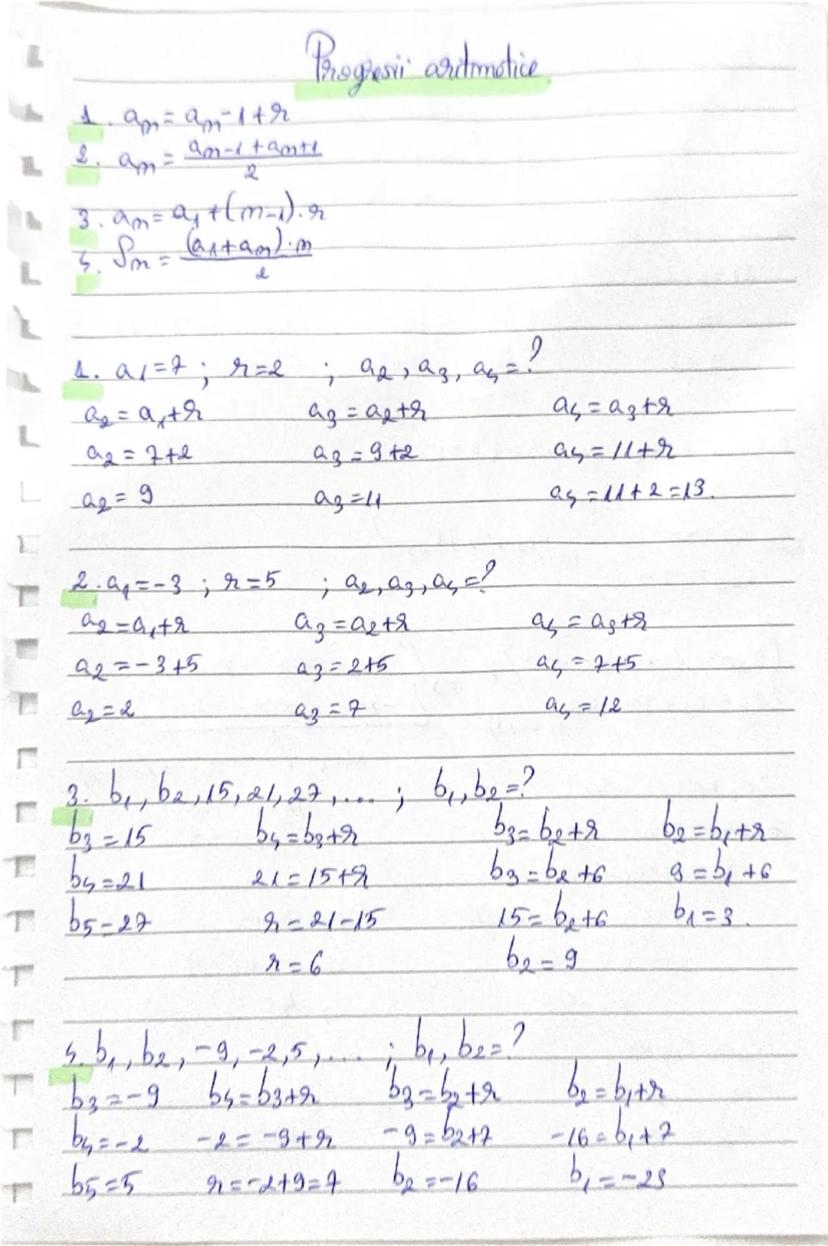 Progresii aritmetice
1. am = am-1+r
2. am = am-1+am+1 / 2
3. am = a1+(m-1)·r
4. Sm = (a1+am)·m / 2
1. a1=7 ; r=2 ; a2, a3, a4=?
a2 = a1+r a3 = a2+r a4 = a3+r
a2 = 7+2 a3 = 9+2 a4 = 11+r
a2 = 9 a3 = 11 a4 = 11+2 = 13.
2. a1=-3 ; r=5 ; a2, a3, a4=?
a2 = a1+r a3 = a2+r a4 = a3+r
a2 = -3+5 a3 = 2+5 a4 = 7+5
a2 = 2 a3 = 7 a4 = 12
3. b1, b2, 15, 21, 27, .... ; b1, b2=?
b3 = 15 b4 = b3+r b3 = b2+r b2 = b1+r
b4 = 21 21 = 15+r b3 = b2+6 9 = b1+6
b5 = 27 r = 21-15 15 = b2+6 b1 = 3.
r = 6 b2 = 9
4. b1, b2, -9, -2, 5, .... ; b1, b2=?
b3 = -9 b4 = b3+r b3 = b2+r b2 = b1+r
b4 = -2 -2 = -9+r -9 = b2+7 -16 = b1+7
b5 = 5 r = -2+9 = 7 b2 = -16 b1 = -23